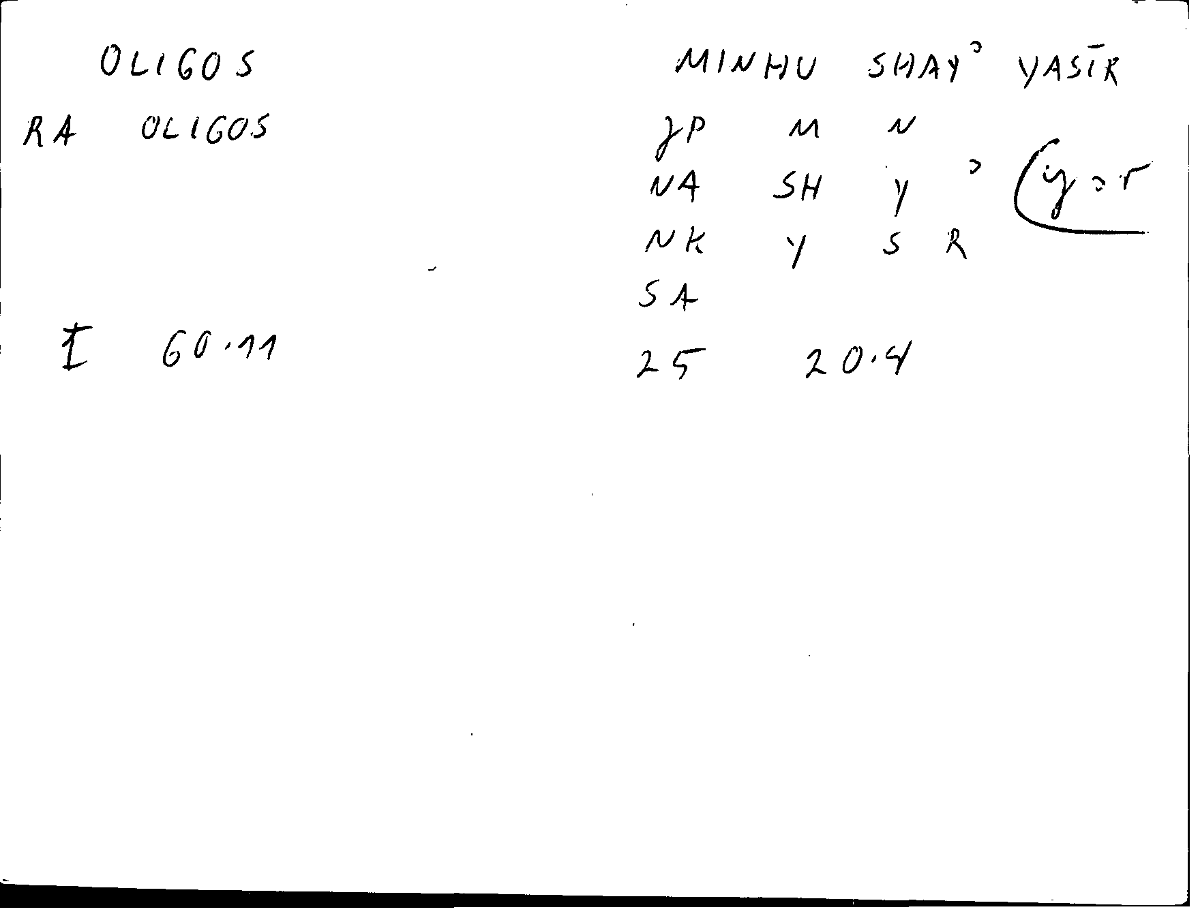 OLIGOS MINHU SHAYʾ YASĪR
RA OLIGOS JP M N
NA SH Y ʾ
NK Y S R
SA
I 60.11 25 20.4